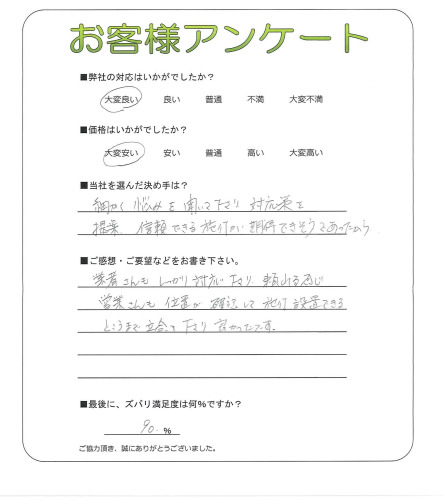 お客様アンケート
■弊社の対応はいかがでしたか?
大変良い 良い 普通 不満 大変不満
■価格はいかがでしたか?
大変安い 安い 普通 高い 大変高い
■当社を選んだ決め手は?
細かく悩みを聞いて下さり 対応策を
提案 信頼できる施行が期待できそうであったから
■ご感想・ご要望などをお書き下さい。
業者さんもしっかり対応下さり 頼れる感じ
営業さんも位置が確認して施行設置できる
ところまで立会って下さり 良かったです。
■最後に、ズバリ満足度は何%ですか?
90 %
ご協力頂き、誠にありがとうございました。